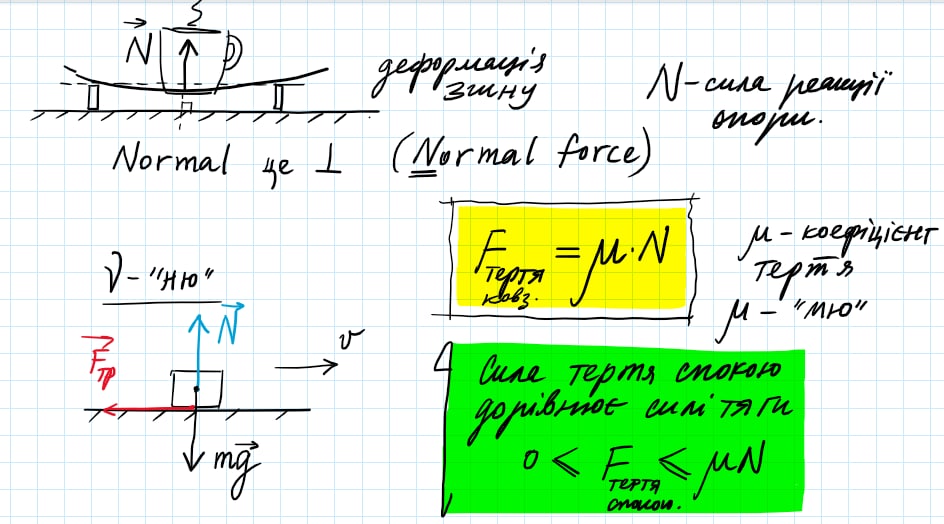 N⃗
деформація
згину
N-сила реакції
опори.
Normal це ⊥ (Normal force)
F тертя ковз. = μ·N
μ - коефіцієнт
тертя
μ - "мю"
ν - "ню"
N⃗
F⃗тр
v
mg⃗
Сила тертя спокою
дорівнює силі тяги
0 ⩽ F тертя спокою. ⩽ μN